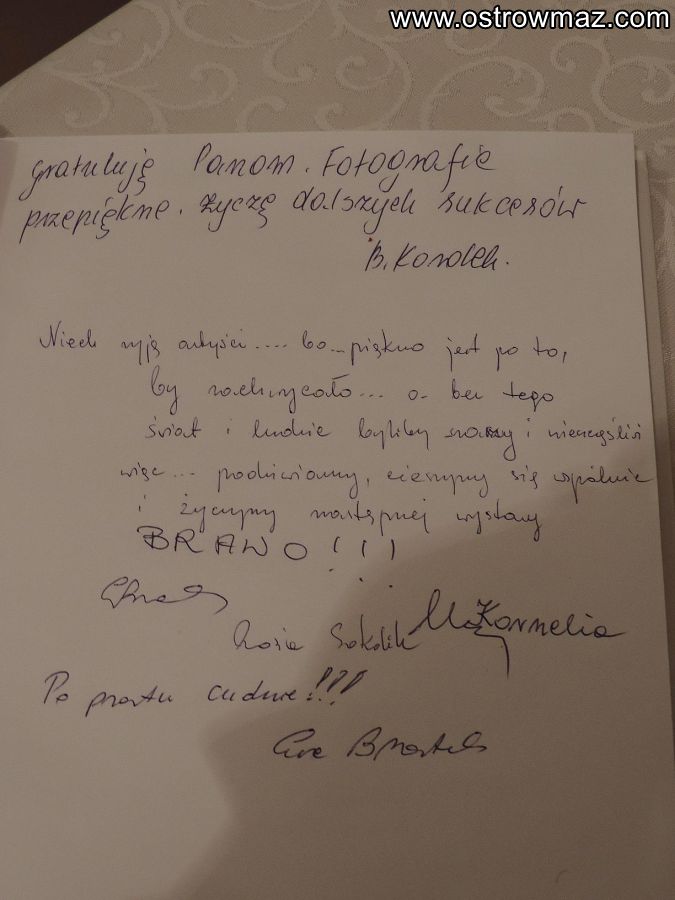 www.ostrowmaz.com
gratuluję Panom. Fotografie
przepiękne. życzę dalszych sukcesów
B.
Niech żyją artyści.... bo... piękno jest po to,
by zachwycało... a bez tego
świat i ludzie byliby szarzy i nieszczęśliwi
więc... podziwiamy, cieszymy się wspólnie
i życzymy następnej wystawy
BRAWO!!!
Zosia Sokolik Kornelia
Po prostu cudne!!!
Ewa